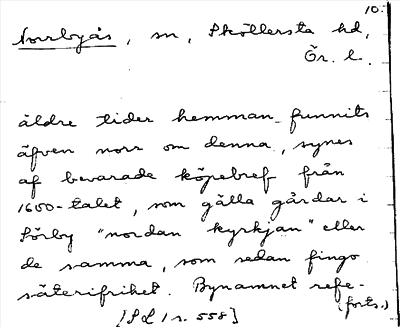 10.
Norrbyås, sn, Sköllersta hd,
Ör. l.
äldre tider hemman funnits
äfven norr om denna, synes
af bevarade köpebref från
1600-talet, som gälla gårdar i
Sörby "nordan kyrkjan" eller
de samma, som sedan fingo
säterifrihet. Bynamnet refe-
(forts.)
[SL 1 s. 558]